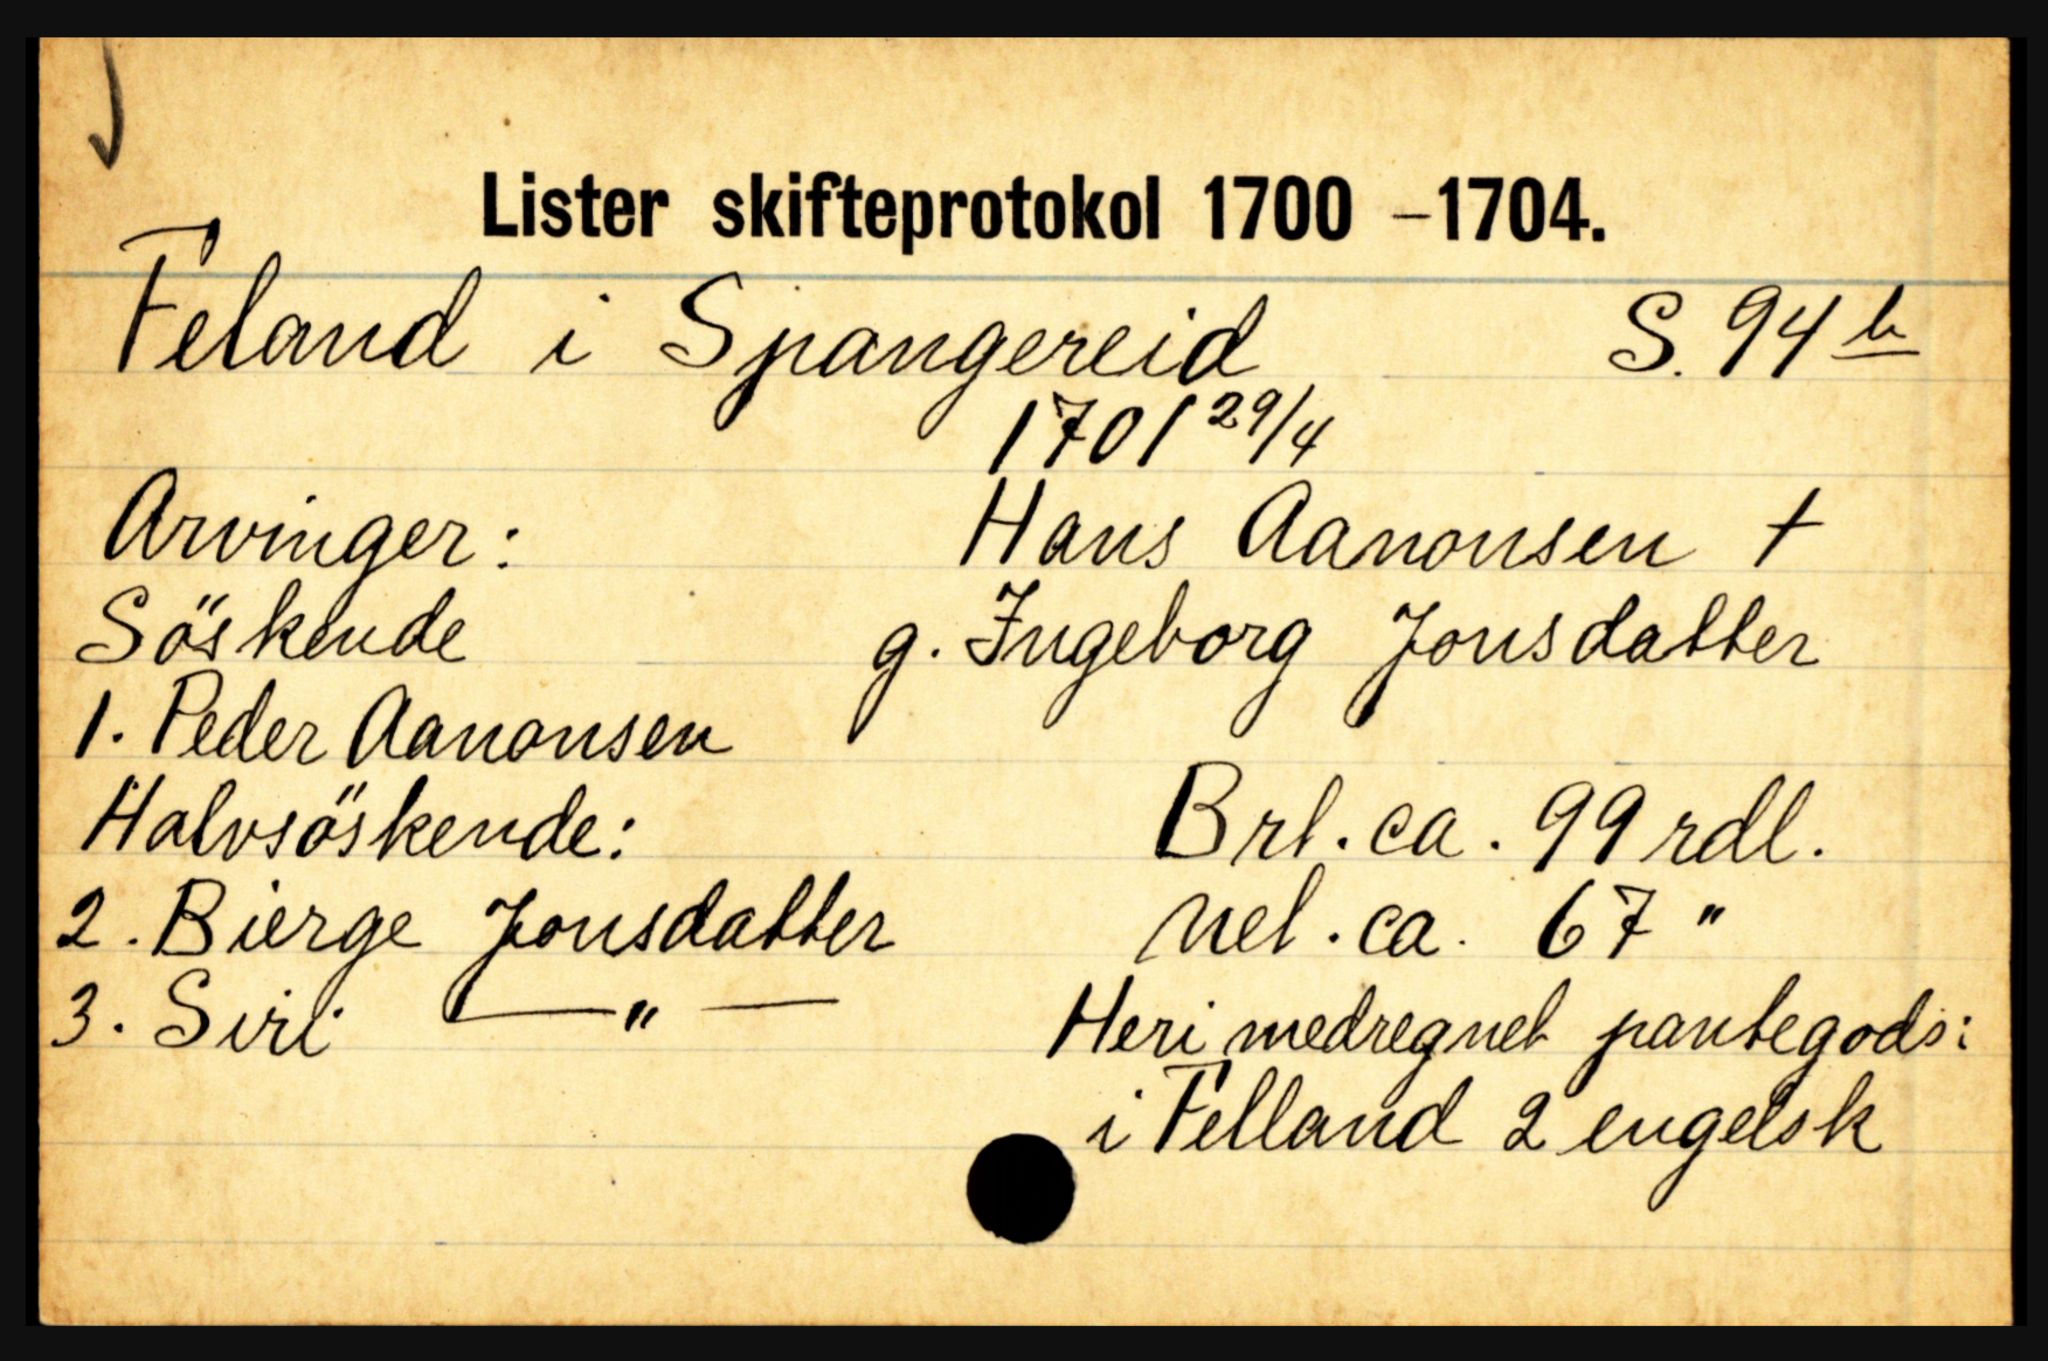 Lister skifteprotokol 1700 –1704.
Feland i Spangereid S. 94 b
1701 29/4
Arvinger: Hans Aanonsen †
Söskende g. Ingeborg Jonsdatter
1. Peder Aanonsen
Halvsöskende: Brt. ca. 99 rdl.
2. Bierge Jonsdatter Net. ca. 67 "
3. Siri — " — Heri medregnet pantegods:
i Felland 2 engelsk